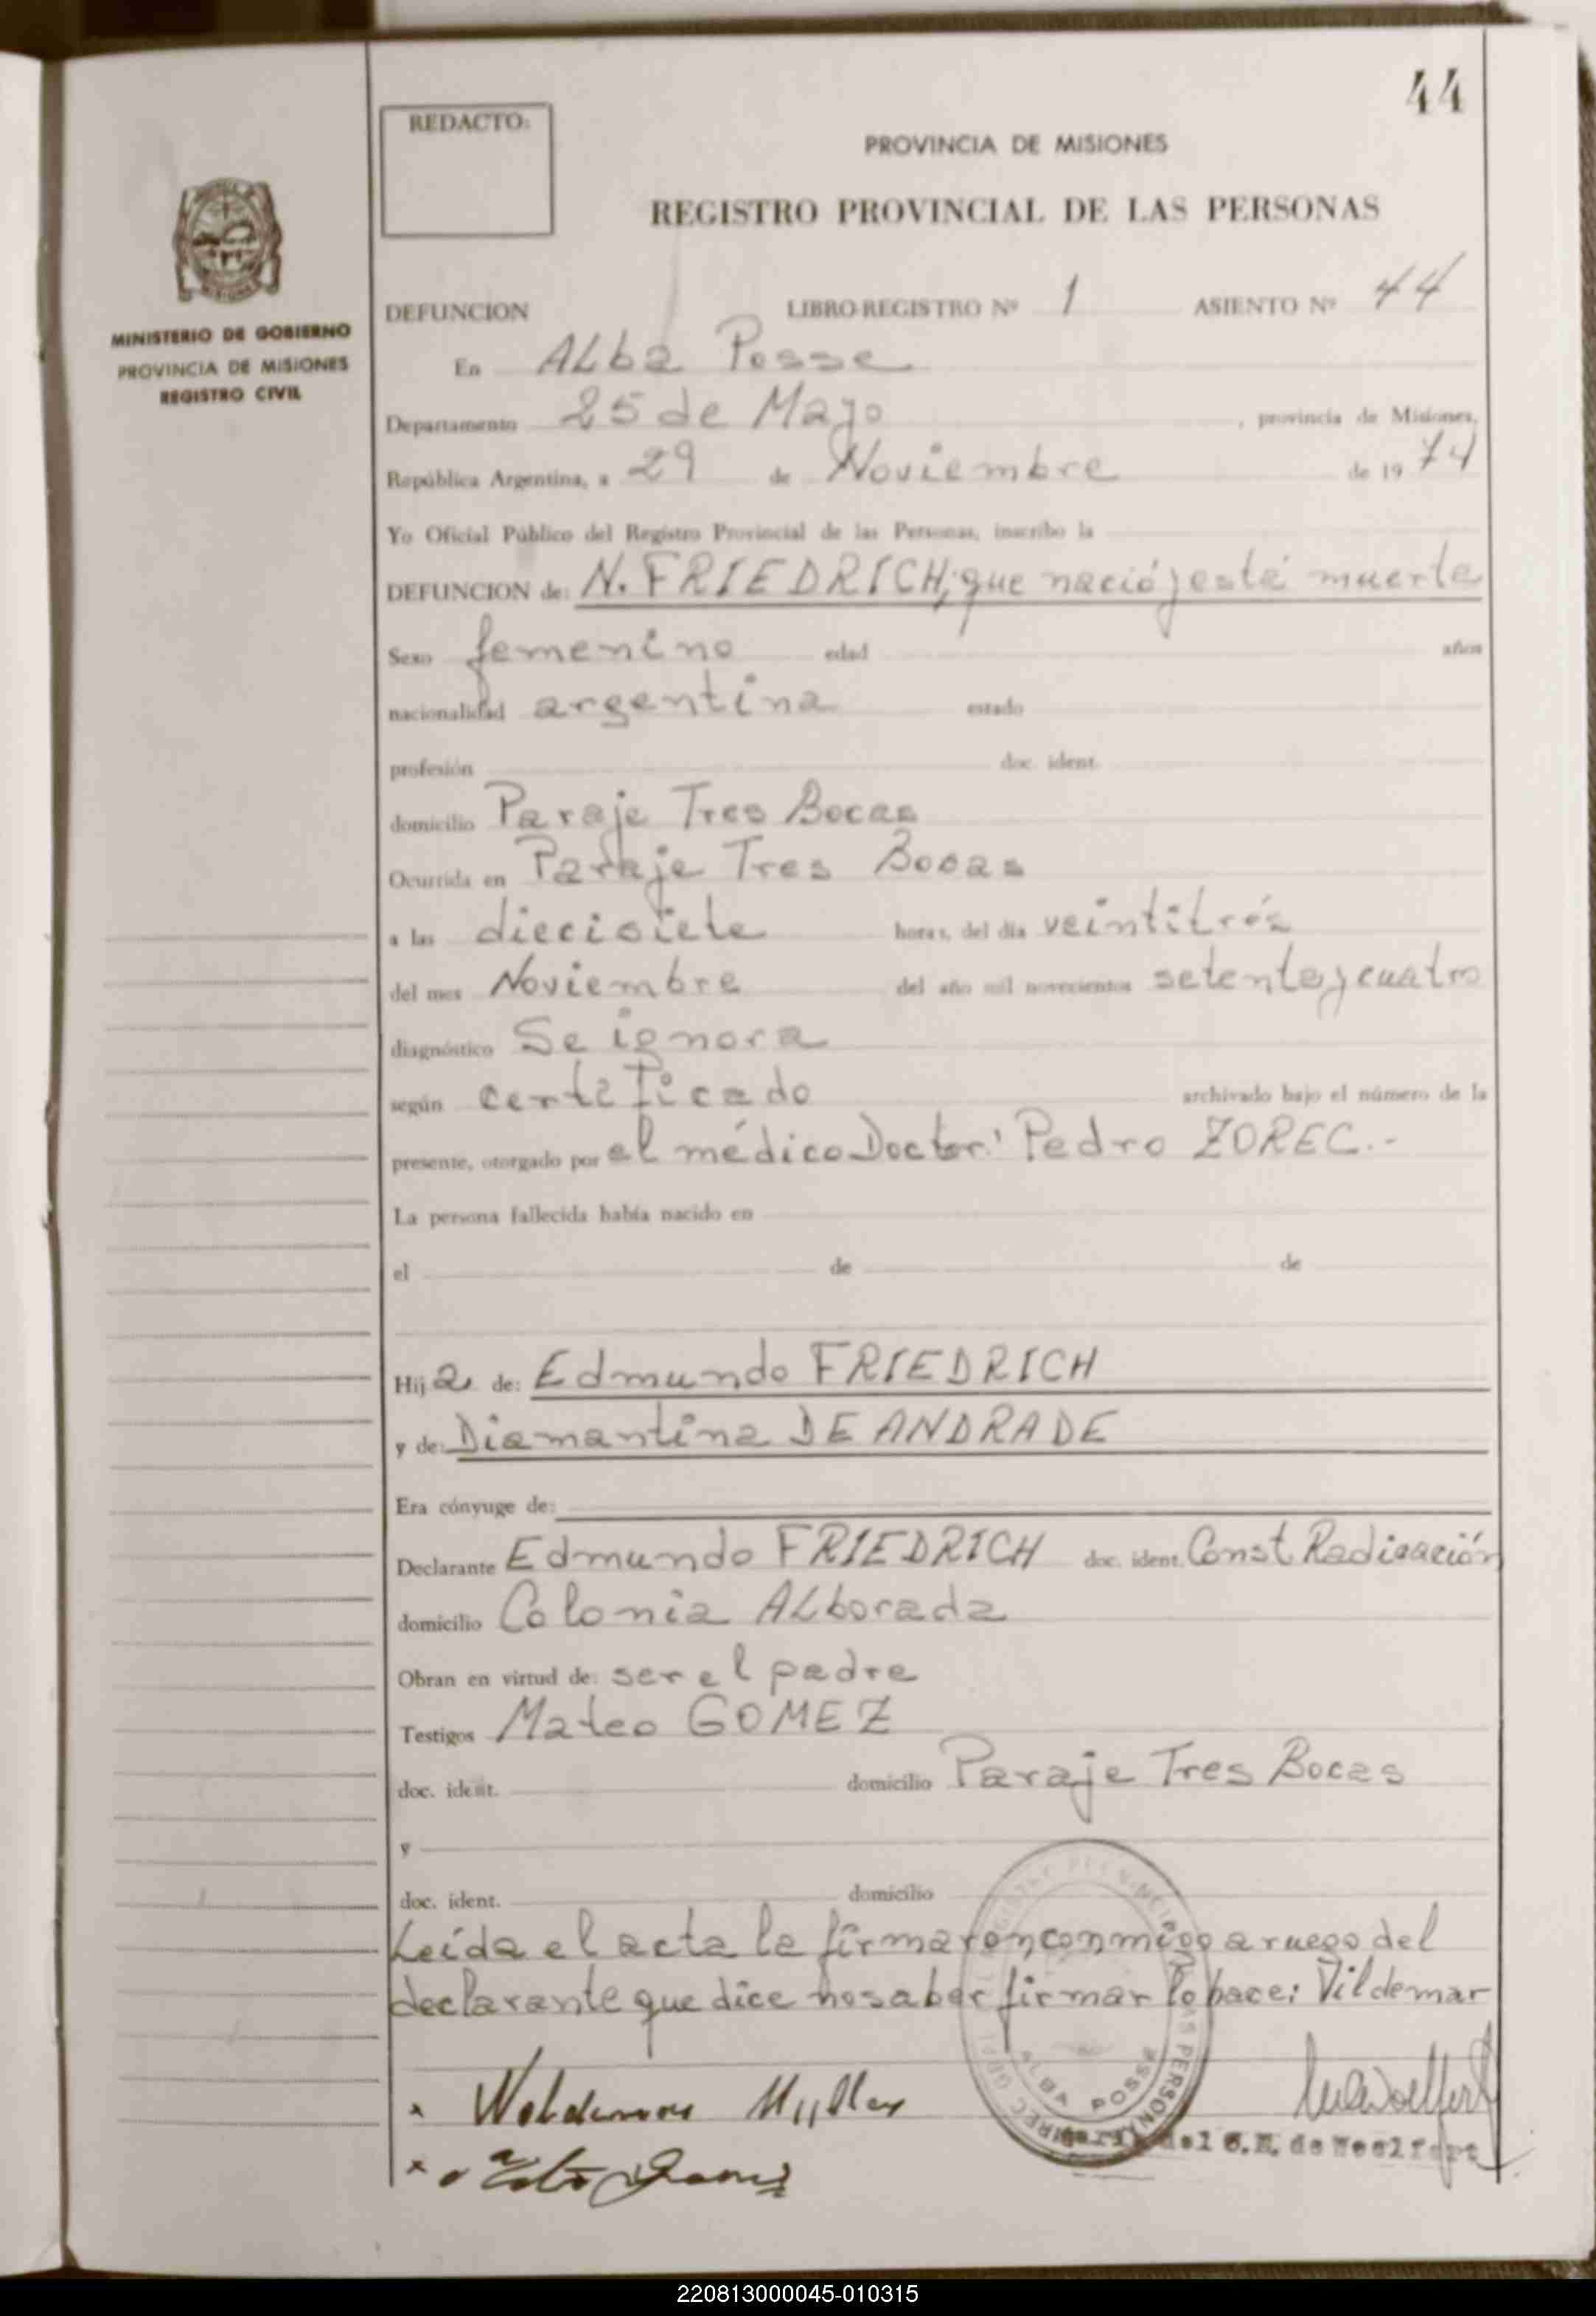 44
REDACTO:
PROVINCIA DE MISIONES
REGISTRO PROVINCIAL DE LAS PERSONAS
MINISTERIO DE GOBIERNO
PROVINCIA DE MISIONES
REGISTRO CIVIL
DEFUNCION LIBRO-REGISTRO Nº 1 ASIENTO Nº 44
En ALba Posse
Departamento 25 de Mayo, provincia de Misiones,
República Argentina, a 29 de Noviembre de 19 74
Yo Oficial Público del Registro Provincial de las Personas, inscribo la
DEFUNCION de: N. FRIEDRICH, que nació y está muerta
Sexo femenino edad años
nacionalidad argentina estado
profesión doc. ident.
domicilio Paraje Tres Bocas
Ocurrida en Paraje Tres Bocas
a las diecisiete horas, del día veintitrés
del mes Noviembre del año mil novecientos setenta y cuatro
diagnóstico Se ignora
según certificado archivado bajo el número de la
presente, otorgado por el médico Doctor: Pedro ZOREC.-
La persona fallecida había nacido en
el de de
Hija de: Edmundo FRIEDRICH
y de: Diamantina DE ANDRADE
Era cónyuge de:
Declarante Edmundo FRIEDRICH doc. ident. Const Radicación
domicilio Colonia ALborada
Obran en virtud de: ser el padre
Testigos Mateo GOMEZ
doc. ident. domicilio Paraje Tres Bocas
y
doc. ident. domicilio
Leída el acta la firmaron conmigo a ruego del
declarante que dice no saber firmar lo hace: Vildemar
ALBA POSSE
del C. M. de Woelfert
220813000045-010315